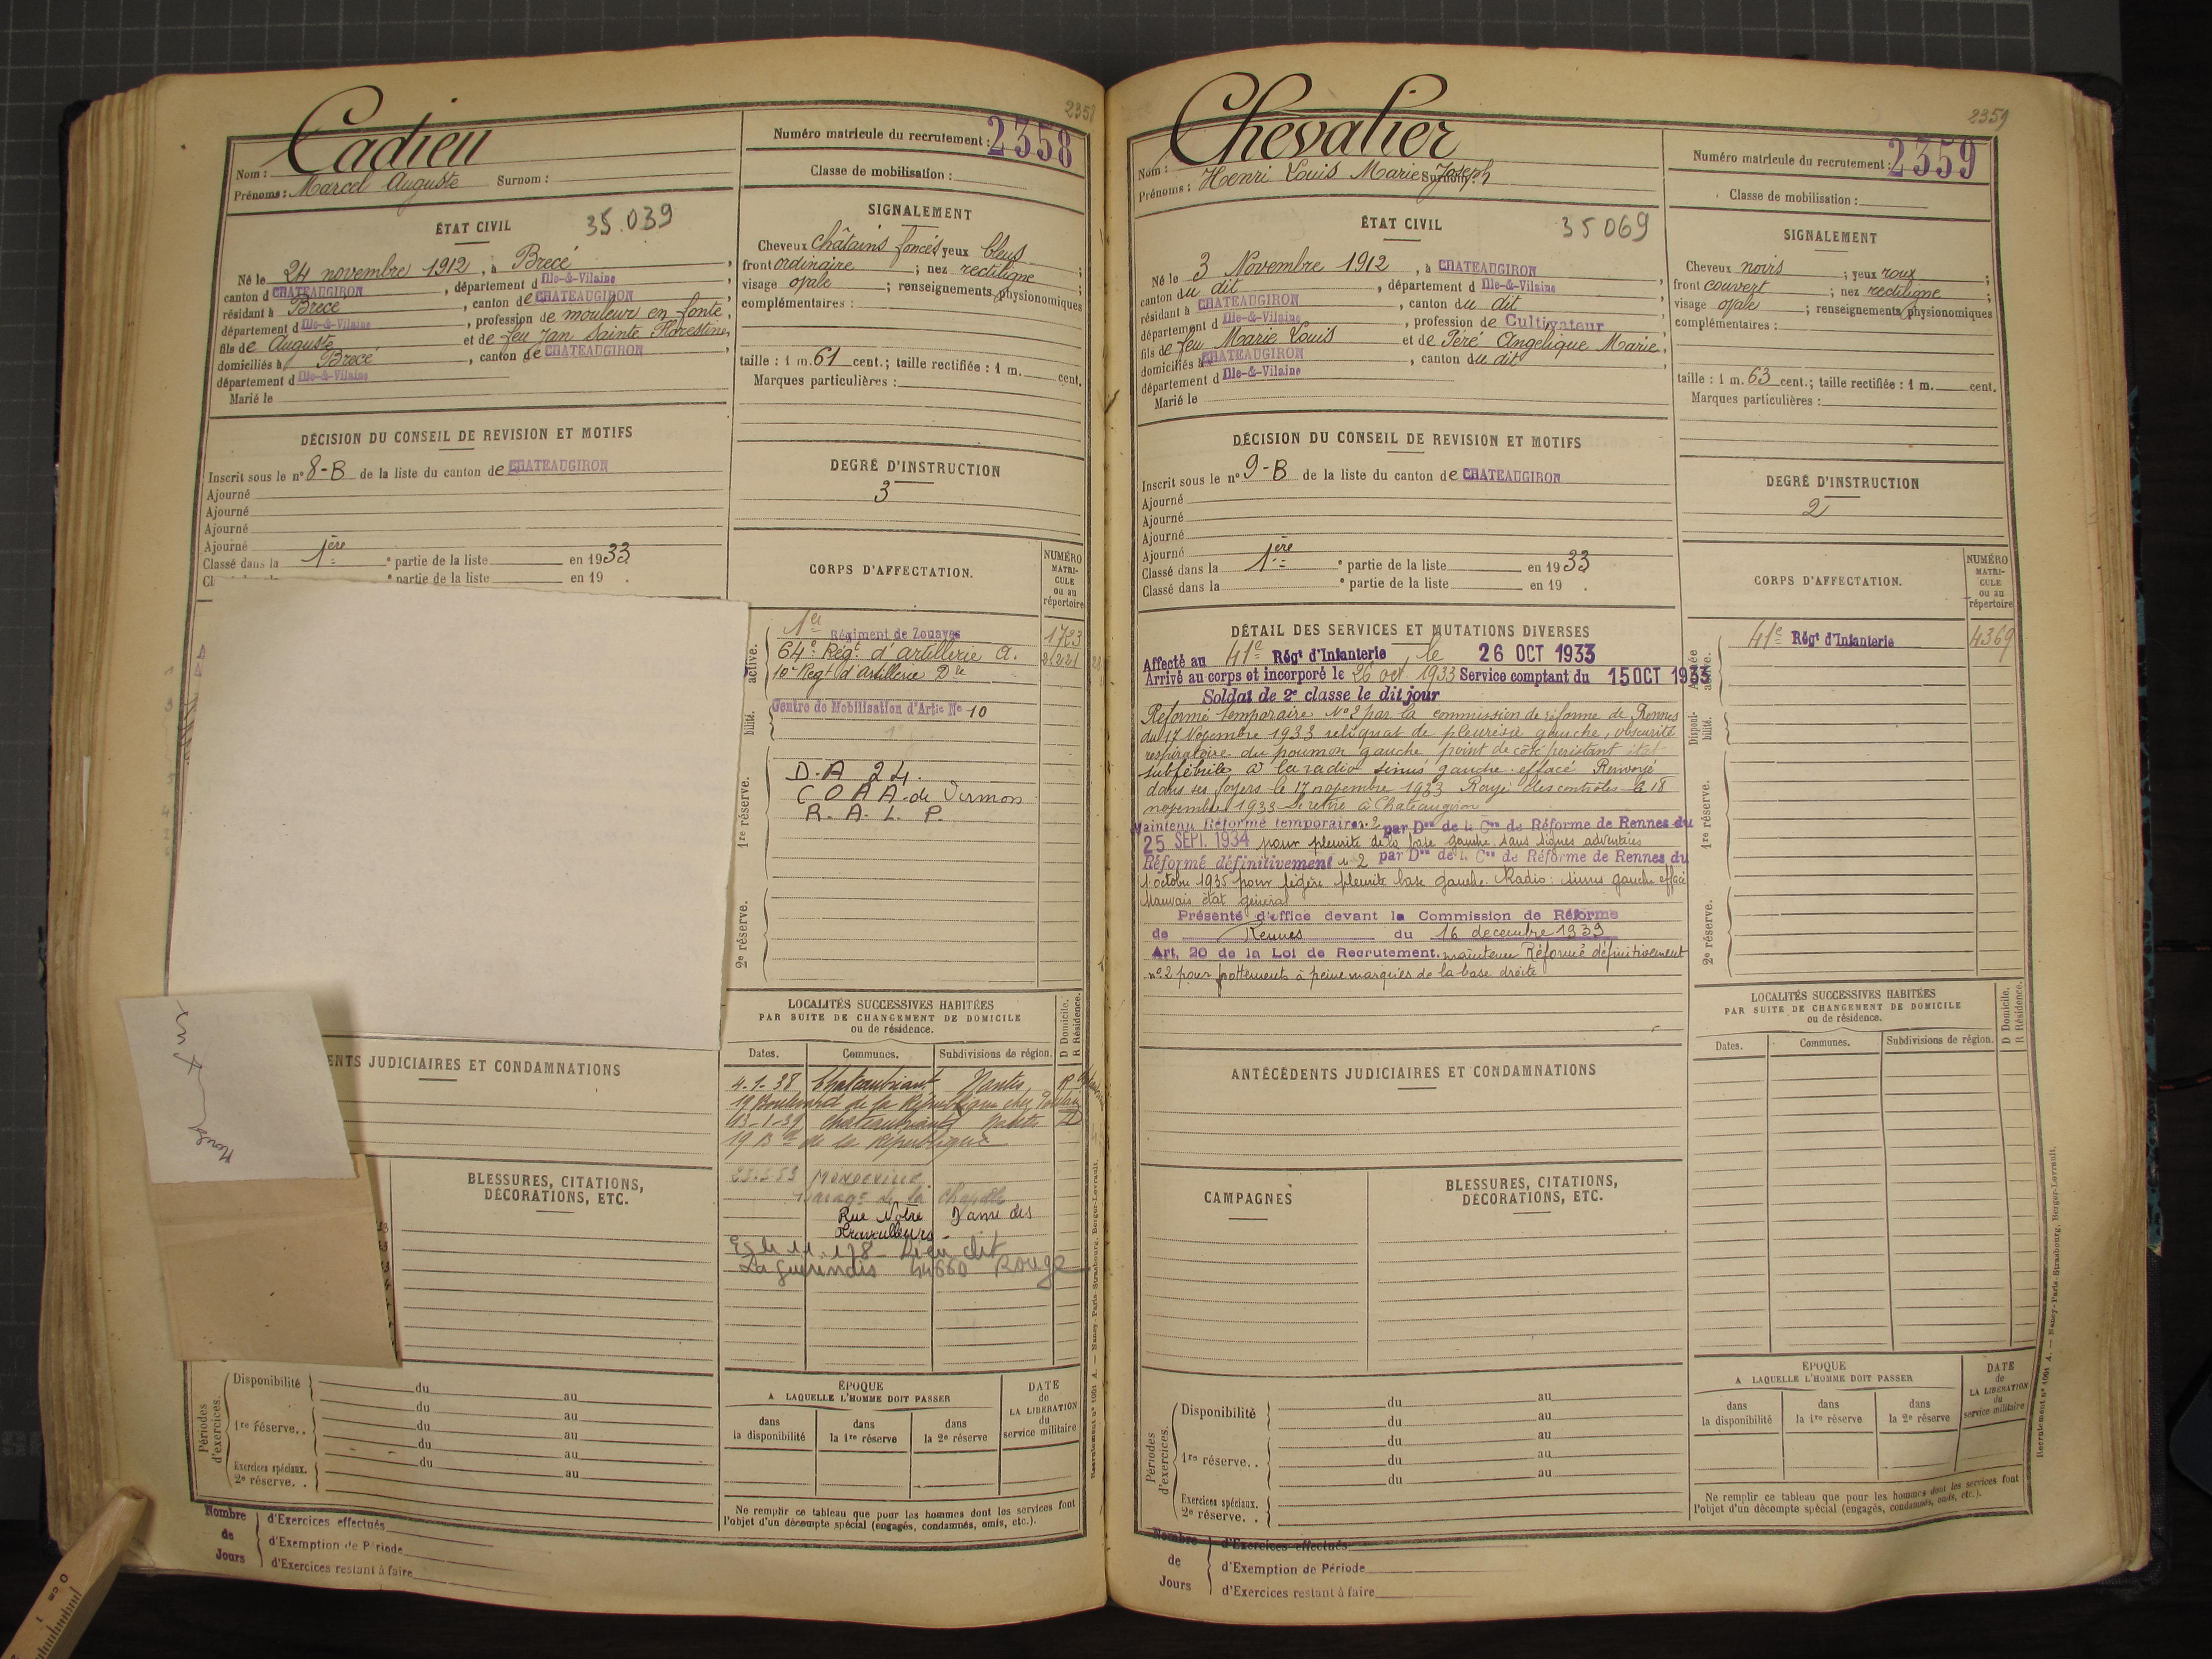 2358
Cadieu
Nom :
Prénoms : Marcel Auguste Surnom :
Numéro matricule du recrutement : 2358
Classe de mobilisation :
ÉTAT CIVIL
35.039
Né le 24 novembre 1912, à Brecé,
canton d CHATEAUGIRON, département d Ille-&-Vilaine
résidant à Brecé, canton de CHATEAUGIRON,
département d Ille-&-Vilaine, profession de mouleur en fonte,
fils de Auguste et de feu Jan Sainte Florestine,
domiciliés à Brecé, canton de CHATEAUGIRON,
département d Ille-&-Vilaine
Marié le
SIGNALEMENT
Cheveux châtains foncés yeux bleus ;
front ordinaire ; nez rectiligne ;
visage ovale ; renseignements physionomiques
complémentaires :
taille : 1 m. 61 cent.; taille rectifiée : 1 m. cent.
Marques particulières :
DÉCISION DU CONSEIL DE REVISION ET MOTIFS
Inscrit sous le n° 8-B de la liste du canton de CHATEAUGIRON
Ajourné
Ajourné
Ajourné
Ajourné
Classé dans la 1ère e partie de la liste en 1933
Cl e partie de la liste en 19 .
DEGRÉ D'INSTRUCTION
3
CORPS D'AFFECTATION.
NUMÉRO MATRI- CULE ou au répertoire
active.
1er Régiment de Zouaves 1723
64e Régt d'artillerie a.
10e Régt d'artillerie Dre
bilité.
Centre de Mobilisation d'Artie N° 10
1re réserve.
D.A 24.
C O A A. de Vernon
R. A. L. P.
2e réserve.
LOCALITÉS SUCCESSIVES HABITÉES
PAR SUITE DE CHANGEMENT DE DOMICILE
ou de résidence.
D Domicile.
R Résidence.
Dates. Communes. Subdivisions de région.
4-1-38 Chateaubriant Nantes R
19 Boulevard de la République chez
13-1-39 Chateaubriant Nantes D
19 Bd de la République
MONDEVILLE
de la Chapelle
Rue Notre Dame des
Travailleurs
Lieu dit
La Guerindis 44660 Rougé
ENTS JUDICIAIRES ET CONDAMNATIONS
BLESSURES, CITATIONS,
DÉCORATIONS, ETC.
Périodes d'exercices.
Disponibilité du au
du au
1re réserve.. du au
du au
du au
Exercices spéciaux.
2e réserve. .
ÉPOQUE
A LAQUELLE L'HOMME DOIT PASSER
DATE
de
LA LIBÉRATION
du
service militaire
dans la disponibilité
dans la 1re réserve
dans la 2e réserve
Ne remplir ce tableau que pour les hommes dont les services font
l'objet d'un décompte spécial (engagés, condamnés, omis, etc.).
Nombre de Jours
d'Exercices effectués
d'Exemption de Période
d'Exercices restant à faire
0 cm 1
2359
Chevalier
Nom :
Prénoms : Henri Louis Marie Joseph Surnom :
Numéro matricule du recrutement : 2359
Classe de mobilisation :
ÉTAT CIVIL
35069
Né le 3 Novembre 1912, à CHATEAUGIRON
canton du dit, département d Ille-&-Vilaine,
résidant à CHATEAUGIRON, canton du dit,
département d Ille-&-Vilaine, profession de Cultivateur
fils de feu Marie Louis et de Péré Angelique Marie,
domiciliés à CHATEAUGIRON, canton du dit,
département d Ille-&-Vilaine
Marié le
SIGNALEMENT
Cheveux noirs ; yeux roux ;
front couvert ; nez rectiligne ;
visage ovale ; renseignements physionomiques
complémentaires :
taille : 1 m. 63 cent.; taille rectifiée : 1 m. cent.
Marques particulières :
DÉCISION DU CONSEIL DE REVISION ET MOTIFS
Inscrit sous le n° 9-B de la liste du canton de CHATEAUGIRON
Ajourné
Ajourné
Ajourné
Ajourné
Classé dans la 1ère e partie de la liste en 1933
Classé dans la e partie de la liste en 19 .
DEGRÉ D'INSTRUCTION
2
DÉTAIL DES SERVICES ET MUTATIONS DIVERSES
Affecté au 41e Régt d'Infanterie, le 26 OCT 1933
Arrivé au corps et incorporé le 26 oct 1933 Service comptant du 15 OCT 1933
Soldat de 2e classe le dit jour
Réformé temporaire N°2 par la commission de réforme de Rennes
du 17 Novembre 1933 reliquat de pleurésie gauche, obscurité
respiratoire du poumon gauche point de coté persistant état
subfébrile à la radio sinus gauche effacé Renvoyé
dans ses foyers le 17 novembre 1933 Rayé des contrôles le 18
novembre 1933 Se retire à Chateaugiron
Maintenu Réformé temporaire n. 2 par Don de la Con de Réforme de Rennes du
25 SEPT. 1934 pour pleurite de la base gauche sans signes adventices
Réformé définitivement n° 2 par Don de la Con de Réforme de Rennes du
1 octobre 1935 pour légère pleurite base gauche. Radio : sinus gauche effacé
Mauvais état général
Présenté d'office devant la Commission de Réforme
de Rennes du 16 decembre 1939
Art. 20 de la Loi de Recrutement. maintenu Réformé définitivement
n° 2 pour frottements à peine marqués de la base droite
CORPS D'AFFECTATION.
NUMÉRO MATRI- CULE ou au répertoire
Armée active.
41e Régt d'Infanterie 4369
Disponi- bilité.
1re réserve.
2e réserve.
LOCALITÉS SUCCESSIVES HABITÉES
PAR SUITE DE CHANGEMENT DE DOMICILE
ou de résidence.
D Domicile.
R Résidence.
Dates. Communes. Subdivisions de région.
ANTÉCÉDENTS JUDICIAIRES ET CONDAMNATIONS
CAMPAGNES
BLESSURES, CITATIONS,
DÉCORATIONS, ETC.
Périodes d'exercices.
Disponibilité du au
du au
1re réserve.. du au
du au
du au
Exercices spéciaux.
2e réserve. .
ÉPOQUE
A LAQUELLE L'HOMME DOIT PASSER
DATE
de
LA LIBÉRATION
du
service militaire
dans la disponibilité
dans la 1re réserve
dans la 2e réserve
Ne remplir ce tableau que pour les hommes dont les services font
l'objet d'un décompte spécial (engagés, condamnés, omis, etc.).
Nombre de Jours
d'Exercices effectués
d'Exemption de Période
d'Exercices restant à faire
Recrutement n° 1001 A. — Nancy-Paris-Strasbourg, Berger-Levrault.